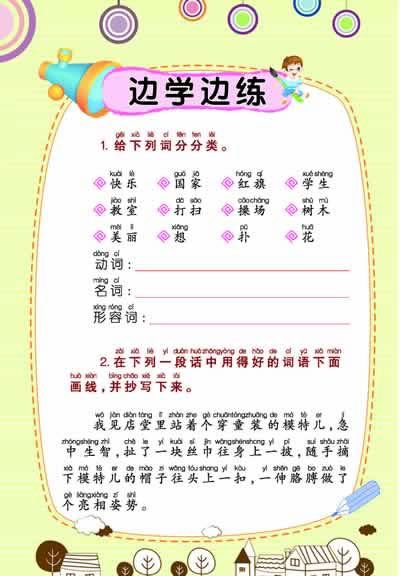 边学边练
gěi xià liè cí fēn fēn lèi
1. 给下列词分分类。
kuài lè guó jiā hóng qí xué shēng
快乐 国家 红旗 学生
jiào shì dǎ sǎo cāo chǎng shù mù
教室 打扫 操场 树木
měi lì xiǎng pū huā
美丽 想 扑 花
dòng cí
动词：
míng cí
名词：
xíng róng cí
形容词：
zài xià liè yí duàn huà zhōng yòng de hǎo de cí yǔ xià miàn
2. 在下列一段话中用得好的词语下面
huà xiàn bìng chāo xiě xià lái
画线，并抄写下来。
wǒ jiàn diàn táng lǐ zhàn zhe gè chuān tóng zhuāng de mó tè ér jí
我见店堂里站着个穿童装的模特儿，急
zhōng shēng zhì chě le yí kuài sī jīn wǎng shēn shàng yì pī suí shǒu zhāi
中生智，扯了一块丝巾往身上一披，随手摘
xià mó tè ér de mào zi wǎng tóu shang yí kòu yì shēn gē bo zuò le
下模特儿的帽子往头上一扣，一伸胳膊做了
gè liàng xiàng zī shì
个亮相姿势。